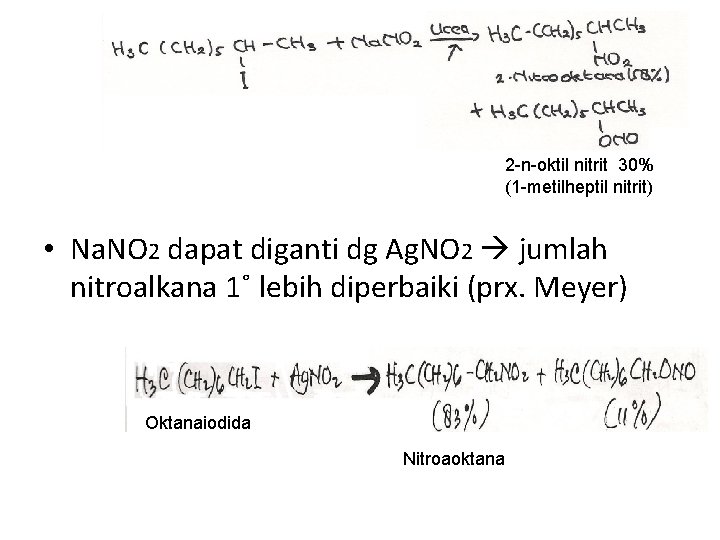 H₃C (CH₂)₅ CH – CH₃ + NaNO₂ Urea → H₃C-(CH₂)₅ CHCH₃
I
NO₂
2-Nitrooktana (58%)
+ H₃C(CH₂)₅ CHCH₃
ONO
2-n-oktil nitrit 30%
(1-metilheptil nitrit)
• Na.NO2 dapat diganti dg Ag.NO2 → jumlah
nitroalkana 1˚ lebih diperbaiki (prx. Meyer)
H₃C (CH₂)₆ CH₂I + AgNO₂ → H₃C(CH₂)₆ -CH₂NO₂ + H₃C(CH₂)₆ CH₂ONO
Oktanaiodida (83%) (11%)
Nitroaoktana